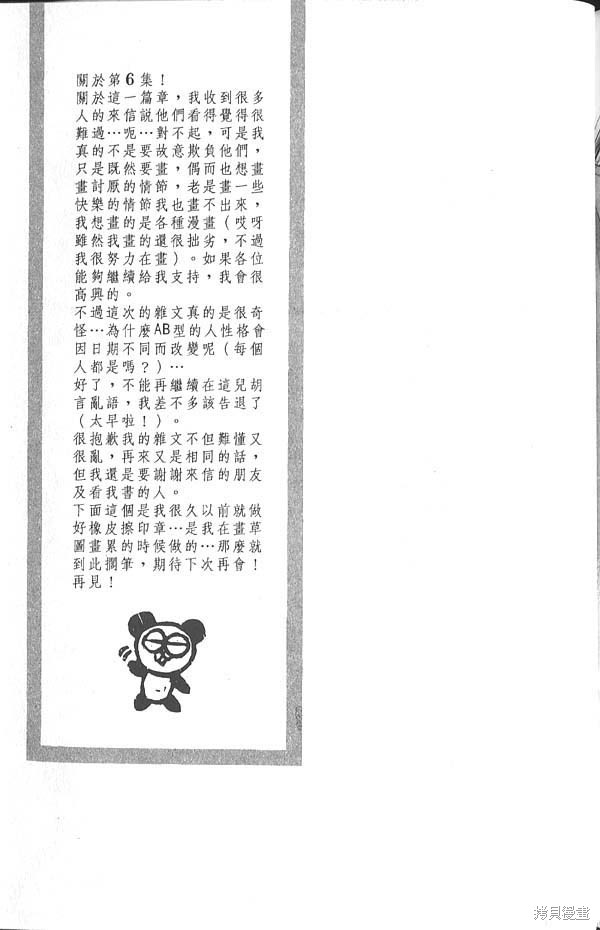 關於第6集！
關於這一篇章，我收到很多
人的來信說他們看得覺得很
難過…呃…對不起，可是我
真的不是要故意欺負他們，
只是既然要畫，偶而也想畫
畫討厭的情節，老是畫些
快樂的情節我也畫不出來，
我想畫的是各種畫（哎呀
雖然我的畫還很拙劣，不過
我很努力在畫）。如果各位
能夠繼續給我支持，我會很
高興的。
不過這次的雜文真的是很奇
怪…為什麼AB型的人性格會
因日期不同而改變呢（每個
人都是嗎？）…
好了，不能再繼續在這兒胡
言亂語，我差不多該告退了
（太早啦！）。
很抱歉我的雜文不但難懂又
很亂，再來又是相同的話，
但我還是要謝謝來信的朋友
及看我書的人。
下面這個是我很久以前就做
好橡皮擦印章…是我在畫草
圖畫累的時候做的…那麼就
到此擱筆，期待下次再會！
再見！
拷貝漫畫